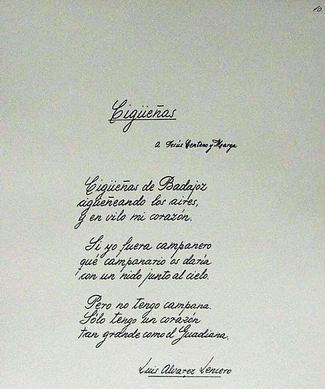 10
Cigüeñas
a Jesús Centeno y Marga
Cigüeñas de Badajoz
cigüeñeando los aires,
y en vilo mi corazón.
Si yo fuera campanero
qué campanario os daría
con un nido junto al cielo.
Pero no tengo campana.
Sólo tengo un corazón
tran grande como el Guadiana.
Luis Alvarez Lencero